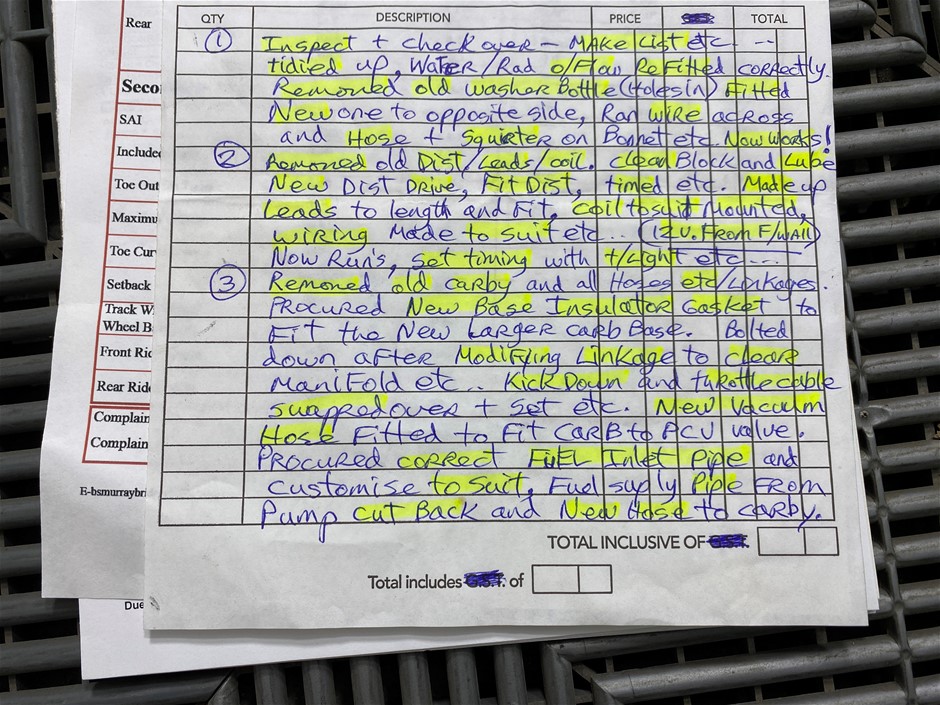 QTY DESCRIPTION PRICE TOTAL
① Inspect + check over – MAKE List etc. --
tidied up, Water/Rad o/Flow ReFitted correctly.
Removed old washer Bottle (Holes in) Fitted
New one to opposite side, Ran wire across
and Hose + Squirter on Bonnet etc. Now Works!
② Removed old Dist/Leads/coil. clean Block and Lube
New Dist Drive, Fit Dist, timed etc. Made up
Leads to length and Fit, coil to suit Mounted,
wiring Made to suit etc... (12v. From F/WAll)
Now Run's, set timing with t/Light etc ----
③ Removed old carby and all Hoses etc/Linkages.
Procured New Base Insulator Gasket to
Fit the New Larger carb Base. Bolted
down after Modifling Linkage to cleare
Manifold etc.. Kick Down and throttle cable
swapped over + set etc. New Vacuum
Hose Fitted to Fit CARB to PCV valve.
Procured correct FUEL Inlet Pipe and
customise to suit, Fuel suply Pipe From
Pump cut Back and New Hose to carby.
TOTAL INCLUSIVE OF G.S.T.
Total includes G.S.T. of
Rear
Seco
SAI
Include
Toe Out
Maximu
Toe Cur
Setback
Track W
Wheel B
Front Rid
Rear Ride
Complain
Complain
E-bsmurraybri
Due